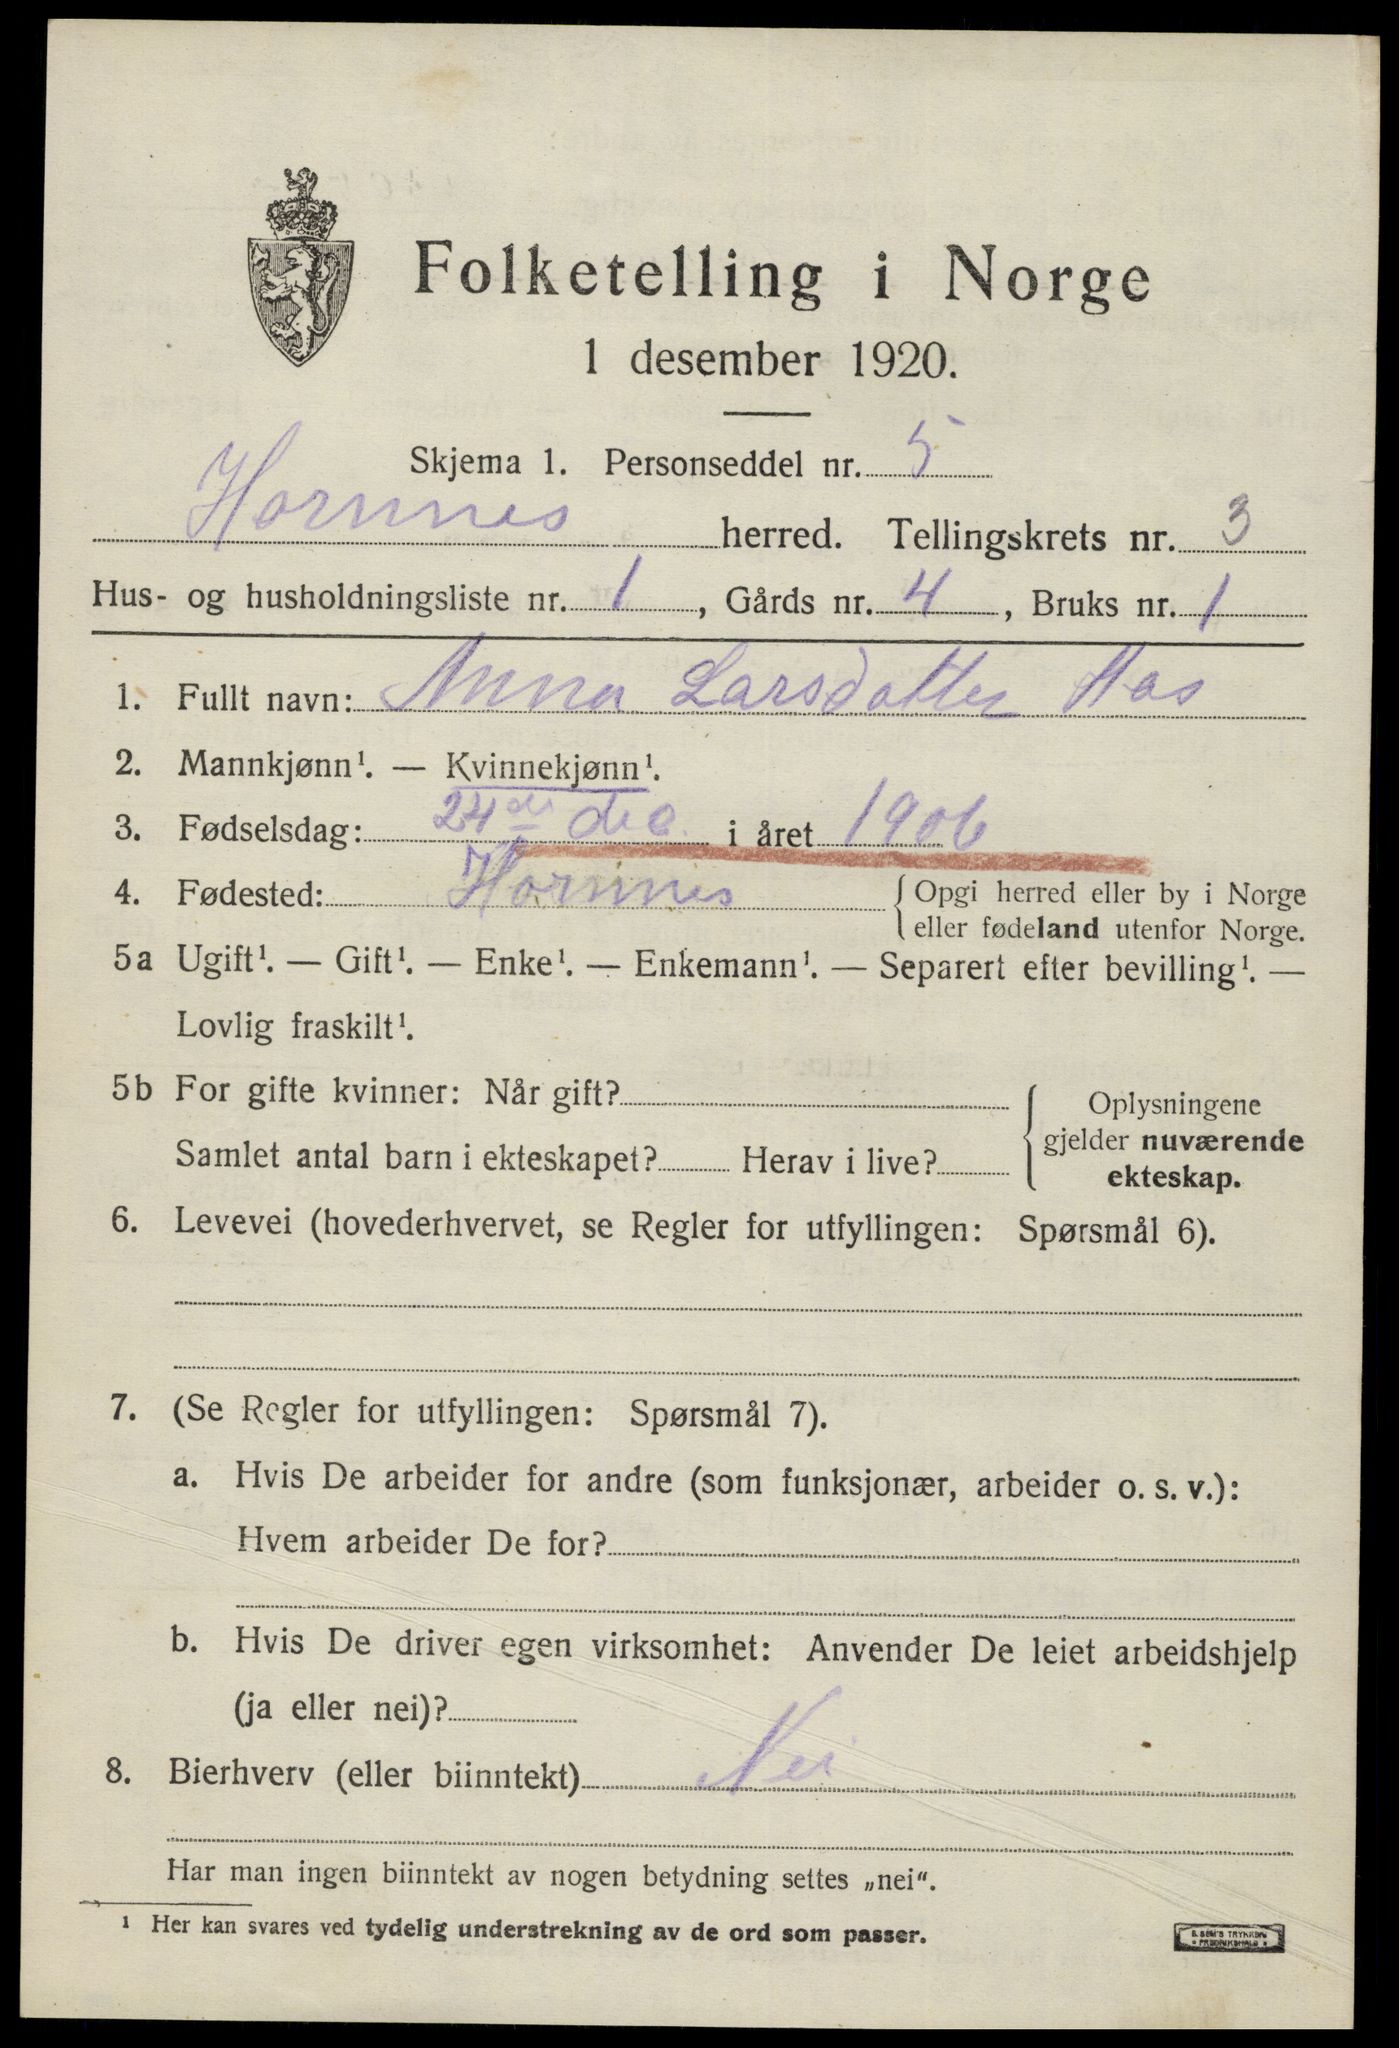 Folketelling i Norge
1 desember 1920.
Skjema 1. Personseddel nr. 5
Hornnes herred. Tellingskrets nr. 3
Hus- og husholdningsliste nr. 1, Gårds nr. 4, Bruks nr. 1
1. Fullt navn: Anna Larsdatter Aas
2. Mannkjønn¹. — Kvinnekjønn¹.
3. Fødselsdag: 24de dec. i året 1906
4. Fødested: Hornnes { Opgi herred eller by i Norge
eller fødeland utenfor Norge.
5a Ugift¹. — Gift¹. — Enke¹. — Enkemann¹. — Separert efter bevilling¹. —
Lovlig fraskilt¹.
5b For gifte kvinner: Når gift?
Samlet antal barn i ekteskapet? Herav i live?
Oplysningene
gjelder nuværende
ekteskap.
6. Levevei (hovederhvervet, se Regler for utfyllingen: Spørsmål 6).
7. (Se Regler for utfyllingen: Spørsmål 7).
a. Hvis De arbeider for andre (som funksjonær, arbeider o. s. v.):
Hvem arbeider De for?
b. Hvis De driver egen virksomhet: Anvender De leiet arbeidshjelp
(ja eller nei)?
8. Bierhverv (eller biinntekt) Nei
Har man ingen biinntekt av nogen betydning settes „nei“.
¹ Her kan svares ved tydelig understrekning av de ord som passer.
E. SEM'S TRYKKERI
• FREDRIKSHALD •